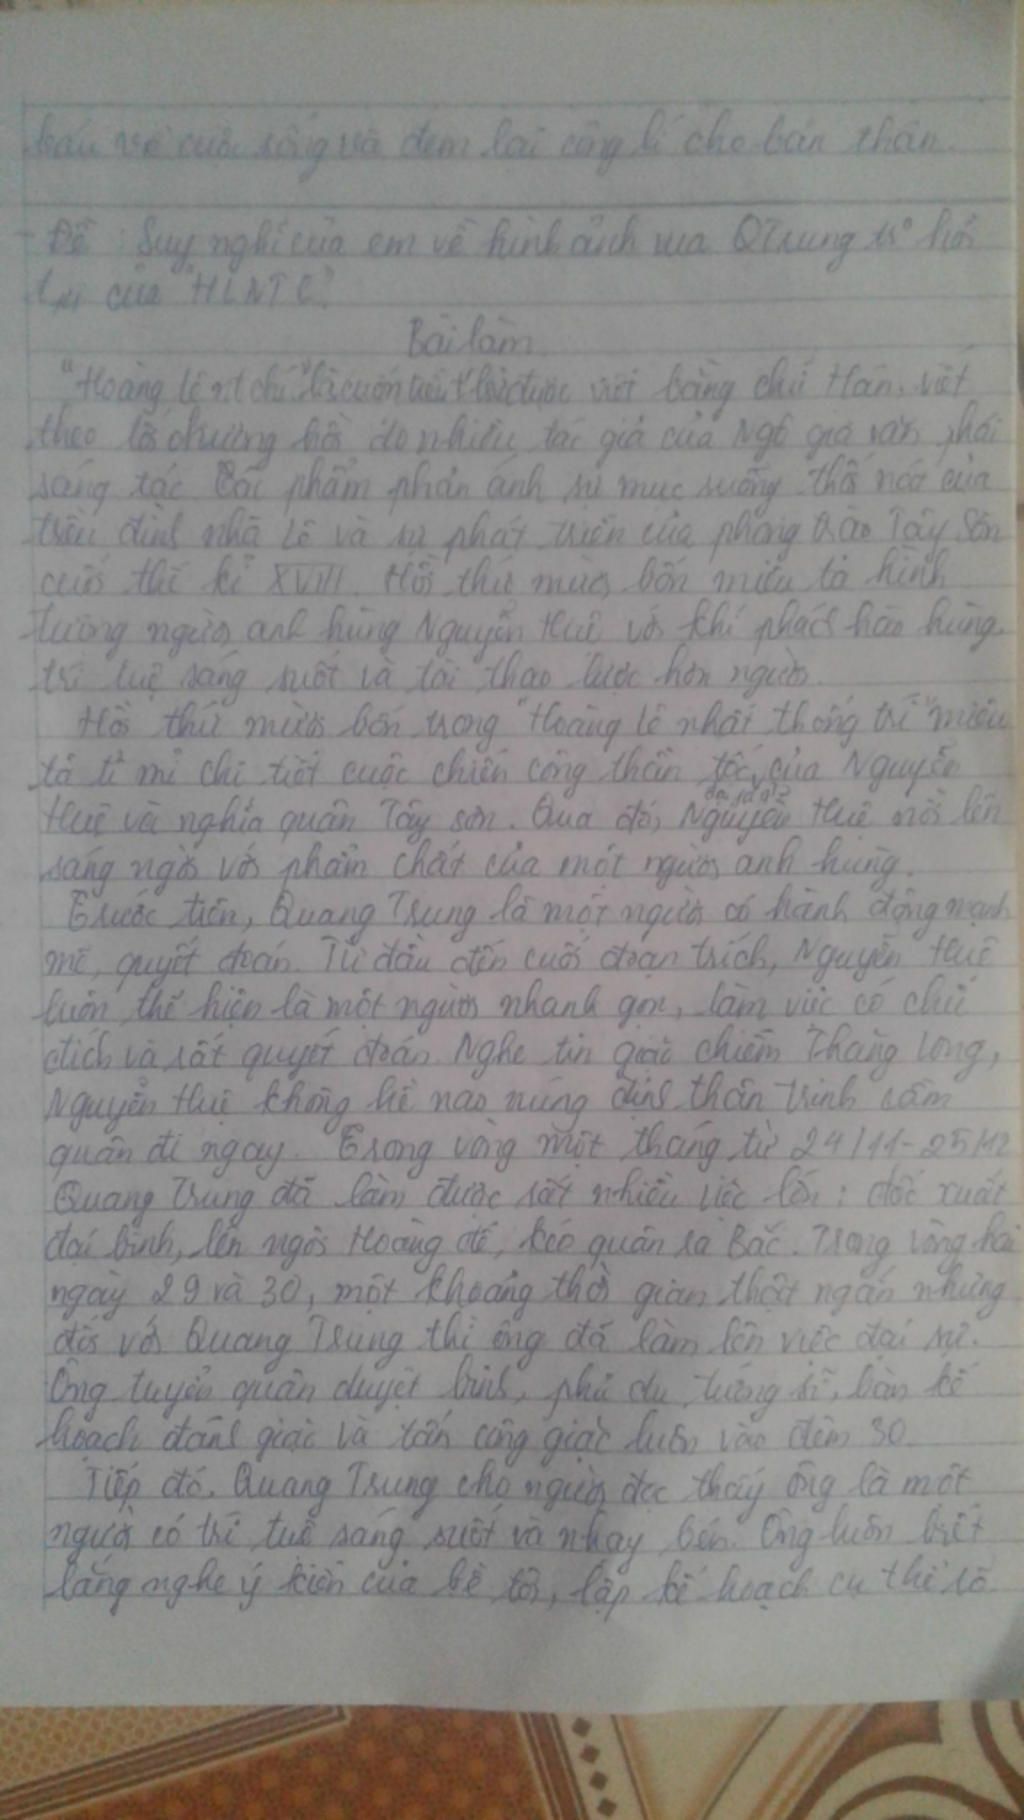 về cuộc sống và đem lại công lí cho bản thân.
Đề : Suy nghĩ của em về hình ảnh vua QTrung hồi
của "HLNTC"
Bài làm
"Hoàng Lê n.t chí" là cuốn tiểu t được viết bằng chữ Hán, viết
theo lối chương hồi do nhiều tác giả của Ngô gia văn phái
sáng tác. phẩm phản ánh sự mục ruỗng thối nát của
triều đình nhà Lê và sự phát triển của phong trào Tây Sơn
cuối thế kỉ XVIII. Hồi thứ mười bốn miêu tả hình
tượng người anh hùng Nguyễn Huệ với khí phách hào hùng,
trí tuệ sáng suốt và tài thao lược hơn người.
Hồi thứ mười bốn trong "Hoàng Lê nhất thống trí" miêu
tả tỉ mỉ chi tiết cuộc chiến công thần tốc của Nguyễn
Huệ và nghĩa quân Tây Sơn. Qua đó, Nguyễn Huệ nổi lên
sáng ngời với phẩm chất của một người anh hùng.
Trước tiên, Quang Trung là một người có hành động mạnh
mẽ, quyết đoán. Từ đầu đến cuối đoạn trích, Nguyễn Huệ
luôn thể hiện là một người nhanh gọn, làm việc có chủ
đích và rất quyết đoán. Nghe tin giặc chiếm Thăng Long,
Nguyễn Huệ không hề nao núng định thân trinh cầm
quân đi ngay. Trong vòng một tháng từ 24/11-25/12
Quang Trung đã làm được rất nhiều việc lớn : đốc xuất
đại binh, lên ngôi Hoàng đế, kéo quân ra Bắc. Trong vòng hai
ngày 29 và 30, một khoảng thời gian thật ngắn nhưng
đối với Quang Trung thì ông đã làm lên việc đại sự.
Ông tuyển quân duyệt binh, phủ dụ tướng sĩ, bàn kế
hoạch đánh giặc và tấn công giặc luôn vào đêm 30.
Tiếp đó, Quang Trung cho người đọc thấy ông là một
người có trí tuệ sáng suốt và nhạy bén. Ông luôn biết
lắng nghe ý kiến của bề tôi, lập kế hoạch cụ thể rõ